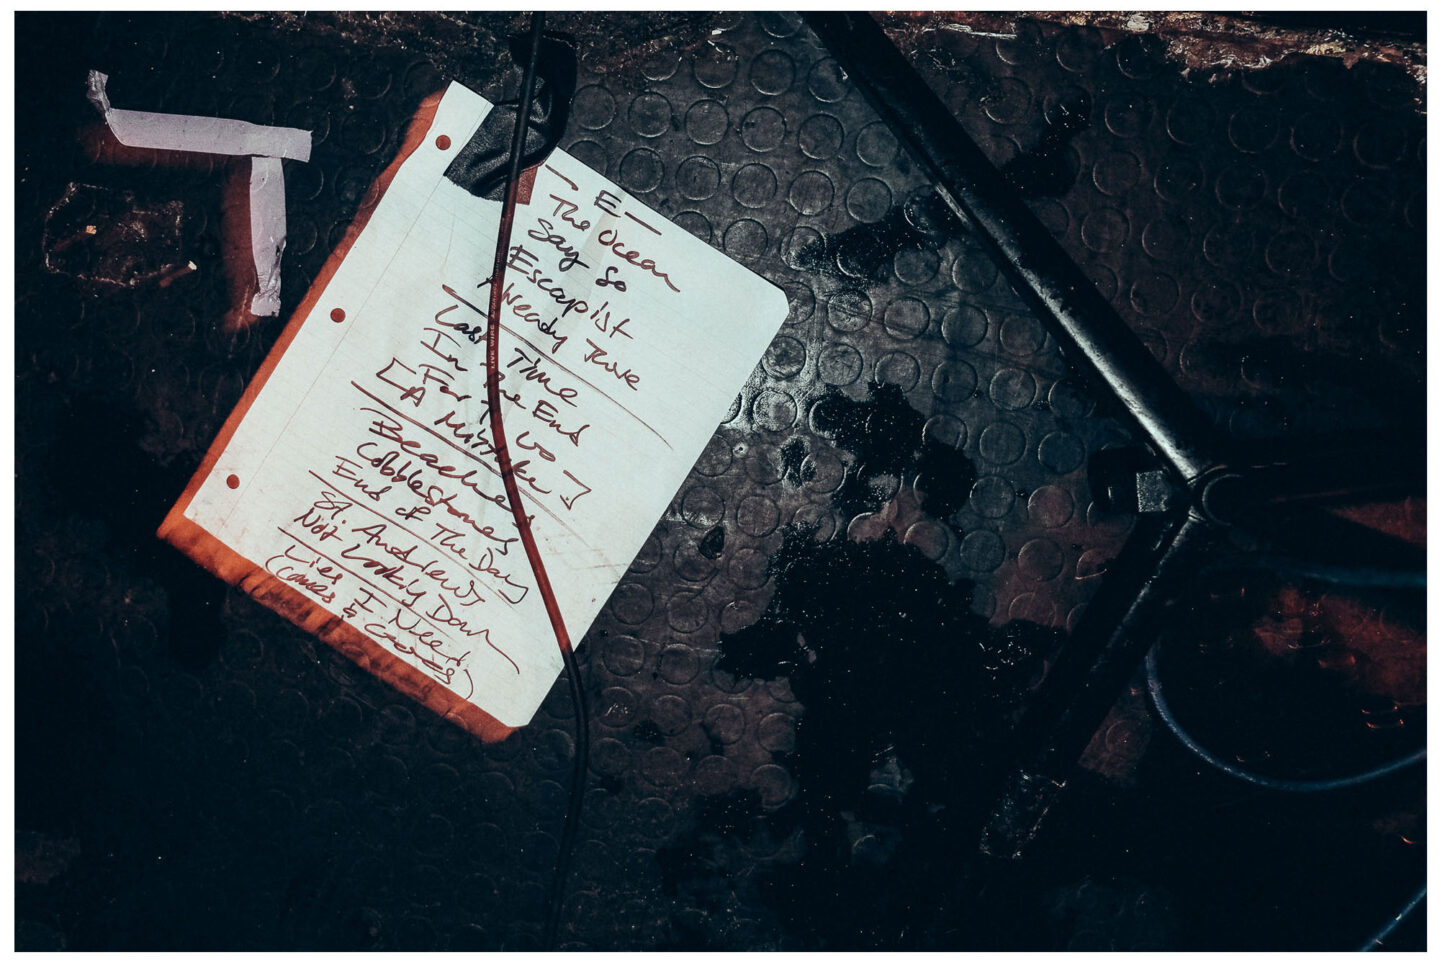 - E -
The Ocean
Say So
Escapist
Already There
Last Time
In The End
[ For The Go
A Mistake ]
Beaches
Cobblestones
End of The Day
St. Andrews
Not Looking Down
Lies I Need
(Comes & Goes)
LIVE WIRE